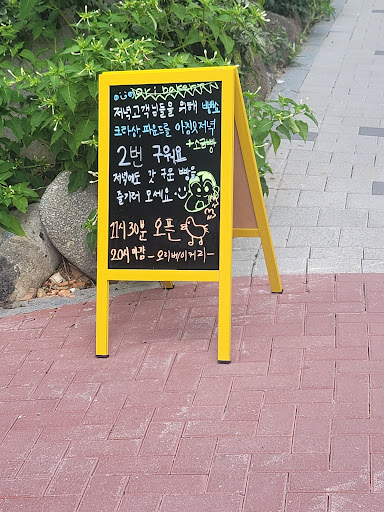 Ori bakery
저녁고객님들을 위해 바쁘소
크라상, 파운드를 아침&저녁
+소금빵
2번 구워요
저녁에도 갓 구운 빵을
즐기러 오세요
11시 30분 오픈
20시 마감 - 오리베이커리 -